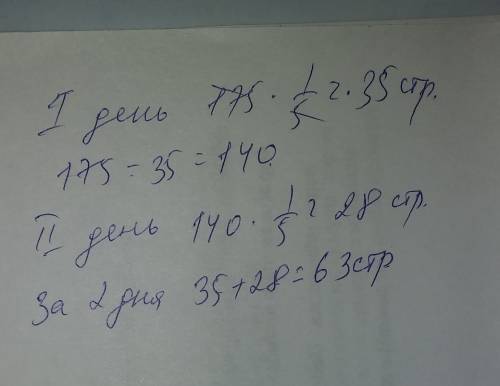 I день 175 · 1/5 = 35 стр.
175 - 35 = 140.
II день 140 · 1/5 = 28 стр.
За 2 дня 35+28=63стр